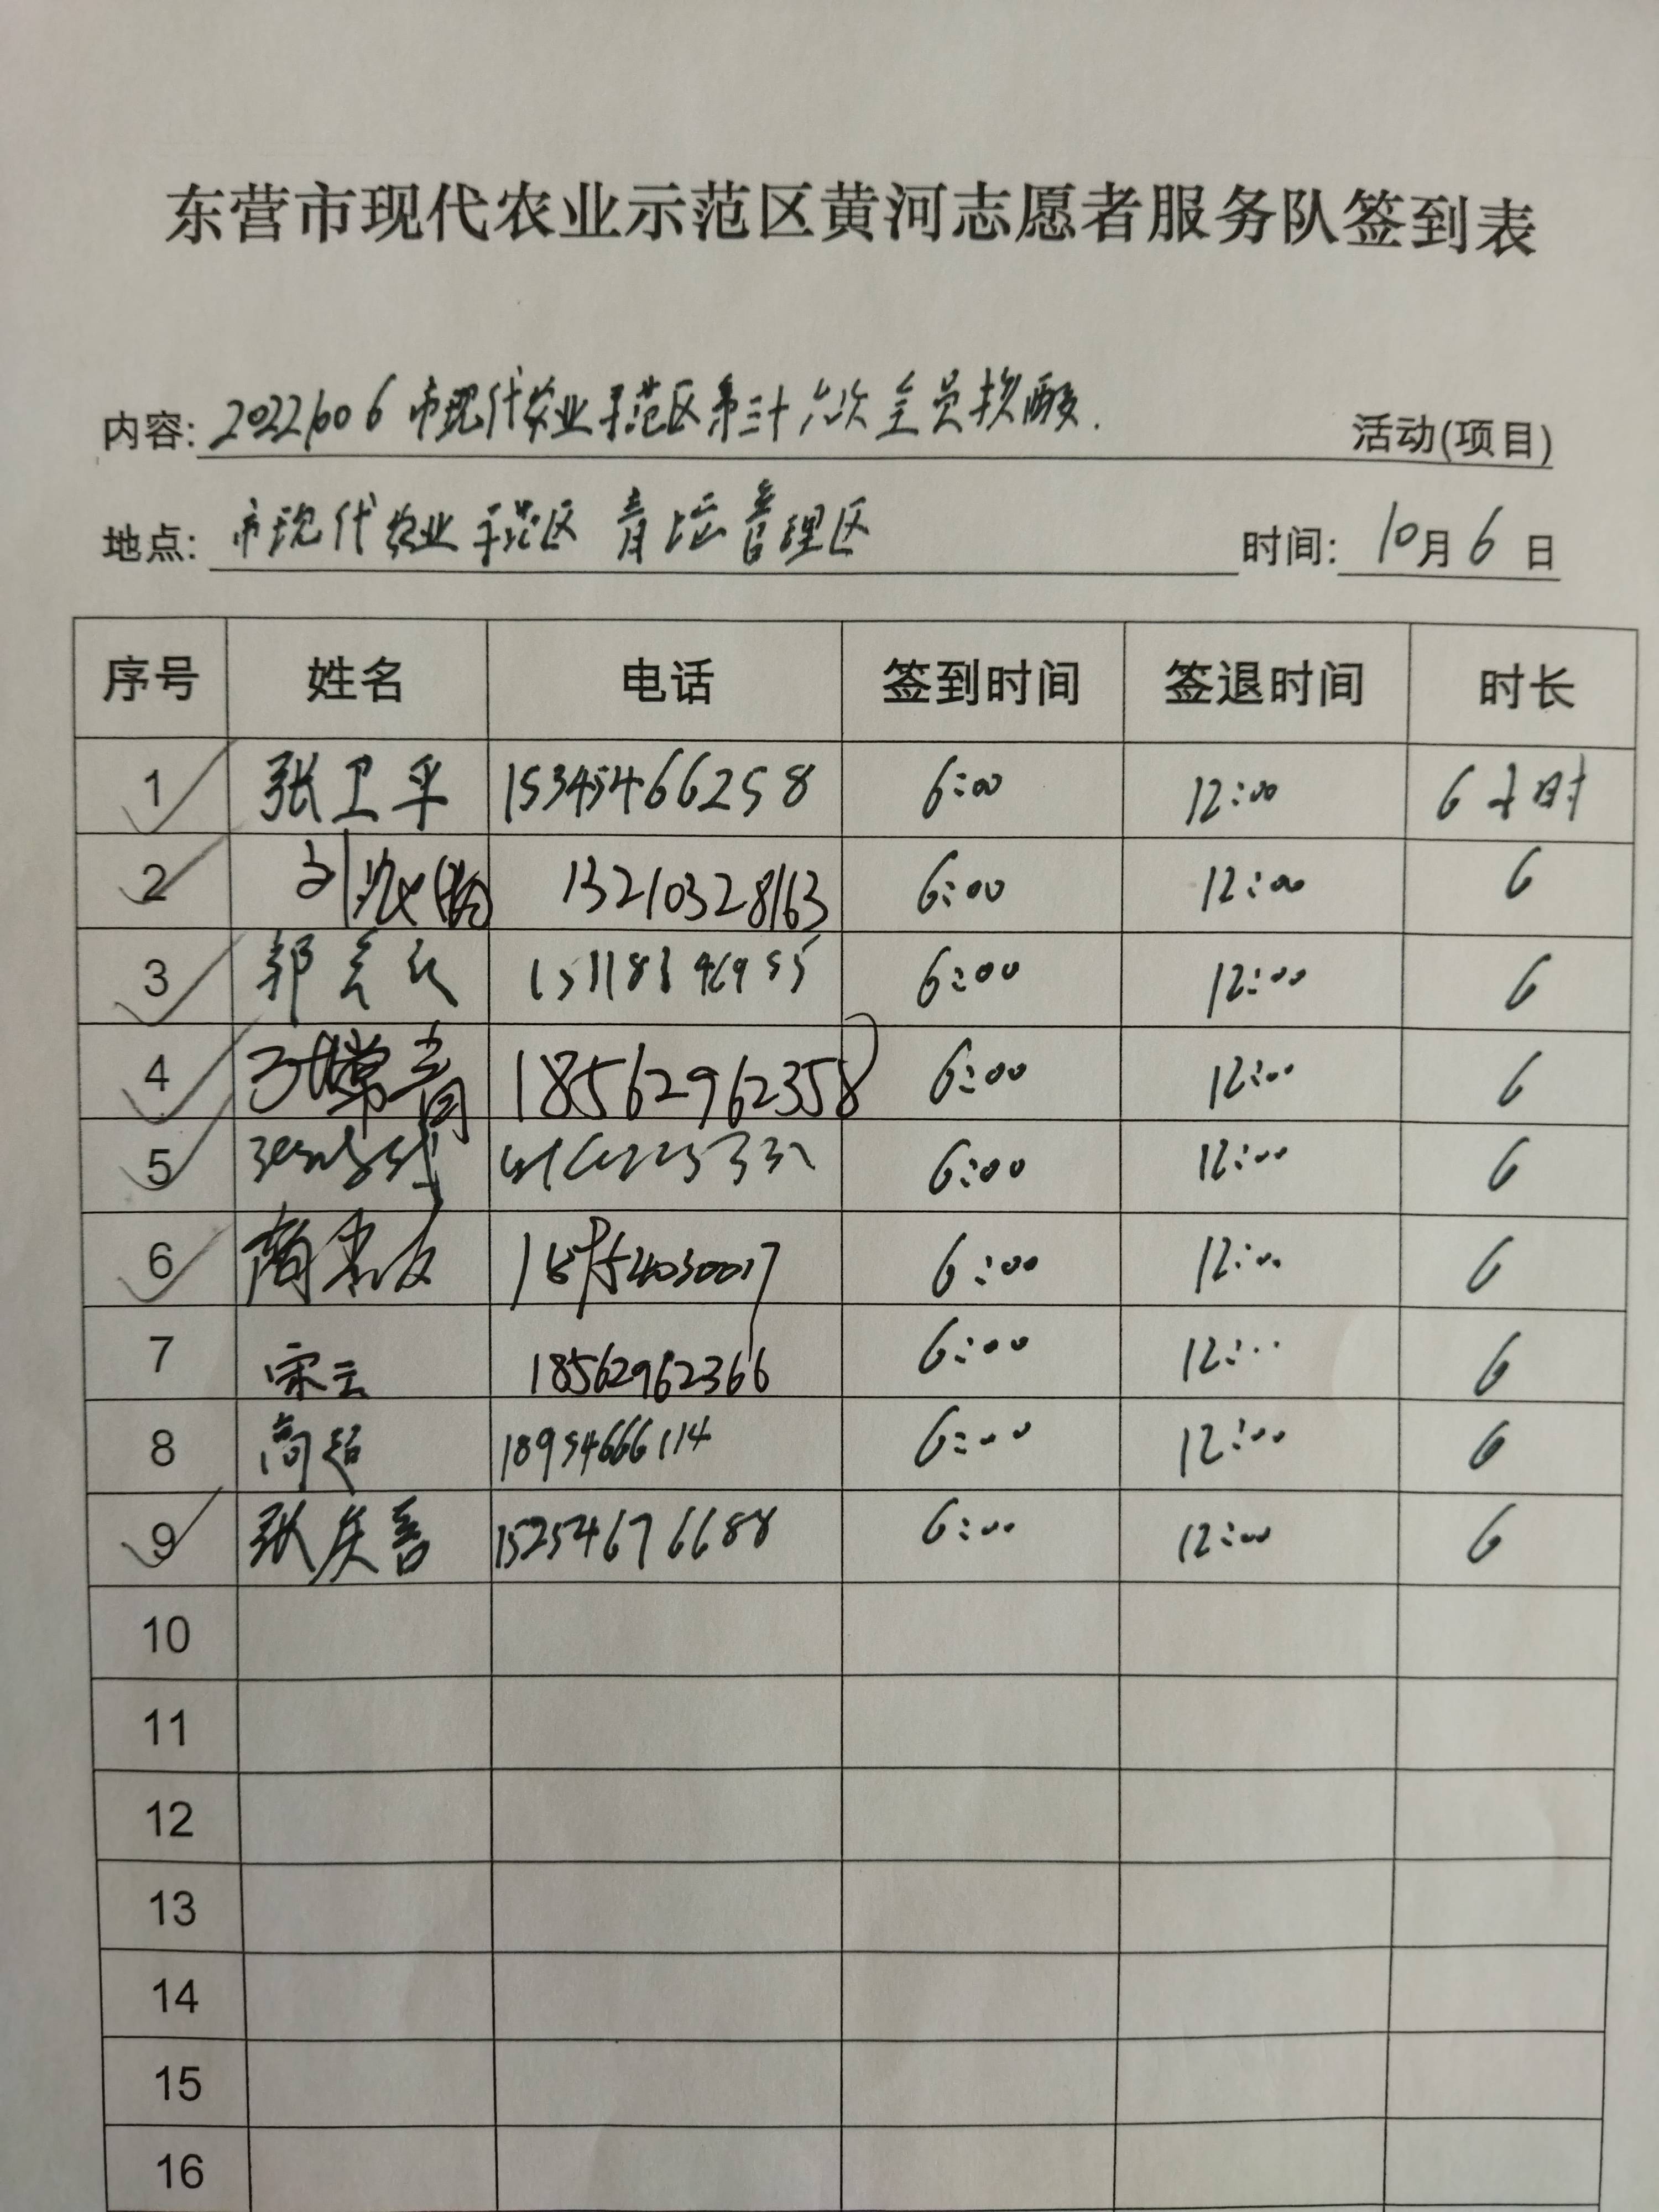 东营市现代农业示范区黄河志愿者服务队签到表
内容: 20221006 市现代农业示范区第三十六次全员核酸. 活动(项目)
地点: 市现代农业示范区 青坨管理区 时间: 10月6日
序号 姓名 电话 签到时间 签退时间 时长
1 张卫平 15345466258 6:00 12:00 6小时
2 13210328163 6:00 12:00 6
3 郭 6:00 12:00 6
4 常青 18562962358 6:00 12:00 6
5 6:00 12:00 6
6 6:00 12:00 6
7 宋云 18562962366 6:00 12:00 6
8 高超 18954666114 6:00 12:00 6
9 张庆喜 15254676688 6:00 12:00 6
10
11
12
13
14
15
16